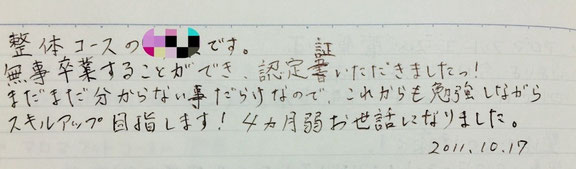 整体コースの です。
無事卒業することができ、認定証書いただきましたっ!
まだまだ分からない事だらけなので、これからも勉強しながら
スキルアップ目指します! 4ヵ月弱お世話になりました。
2011.10.17